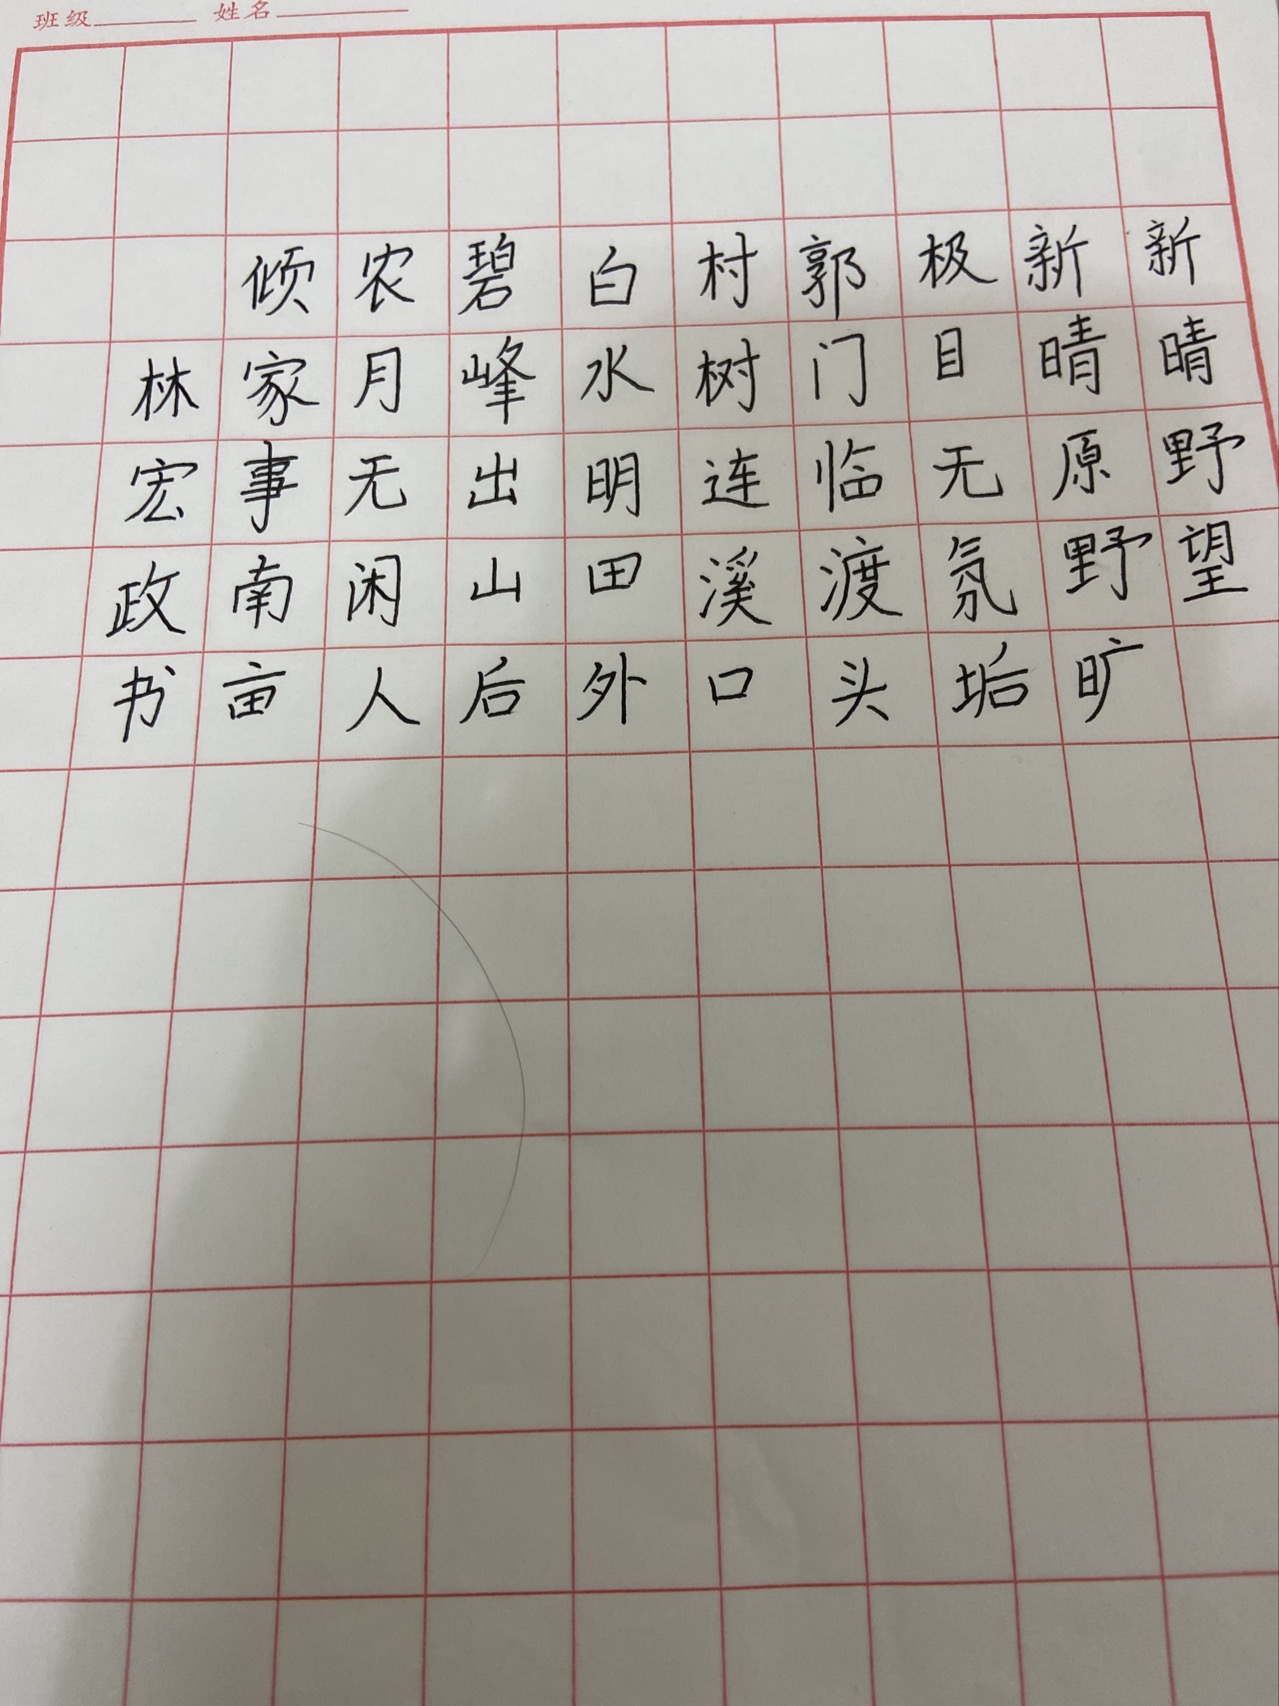 班级 姓名
新晴野望
新晴原野旷
极目无氛垢
郭门临渡头
村树连溪口
白水明田外
碧峰出山后
农月无闲人
倾家事南亩
林宏政书